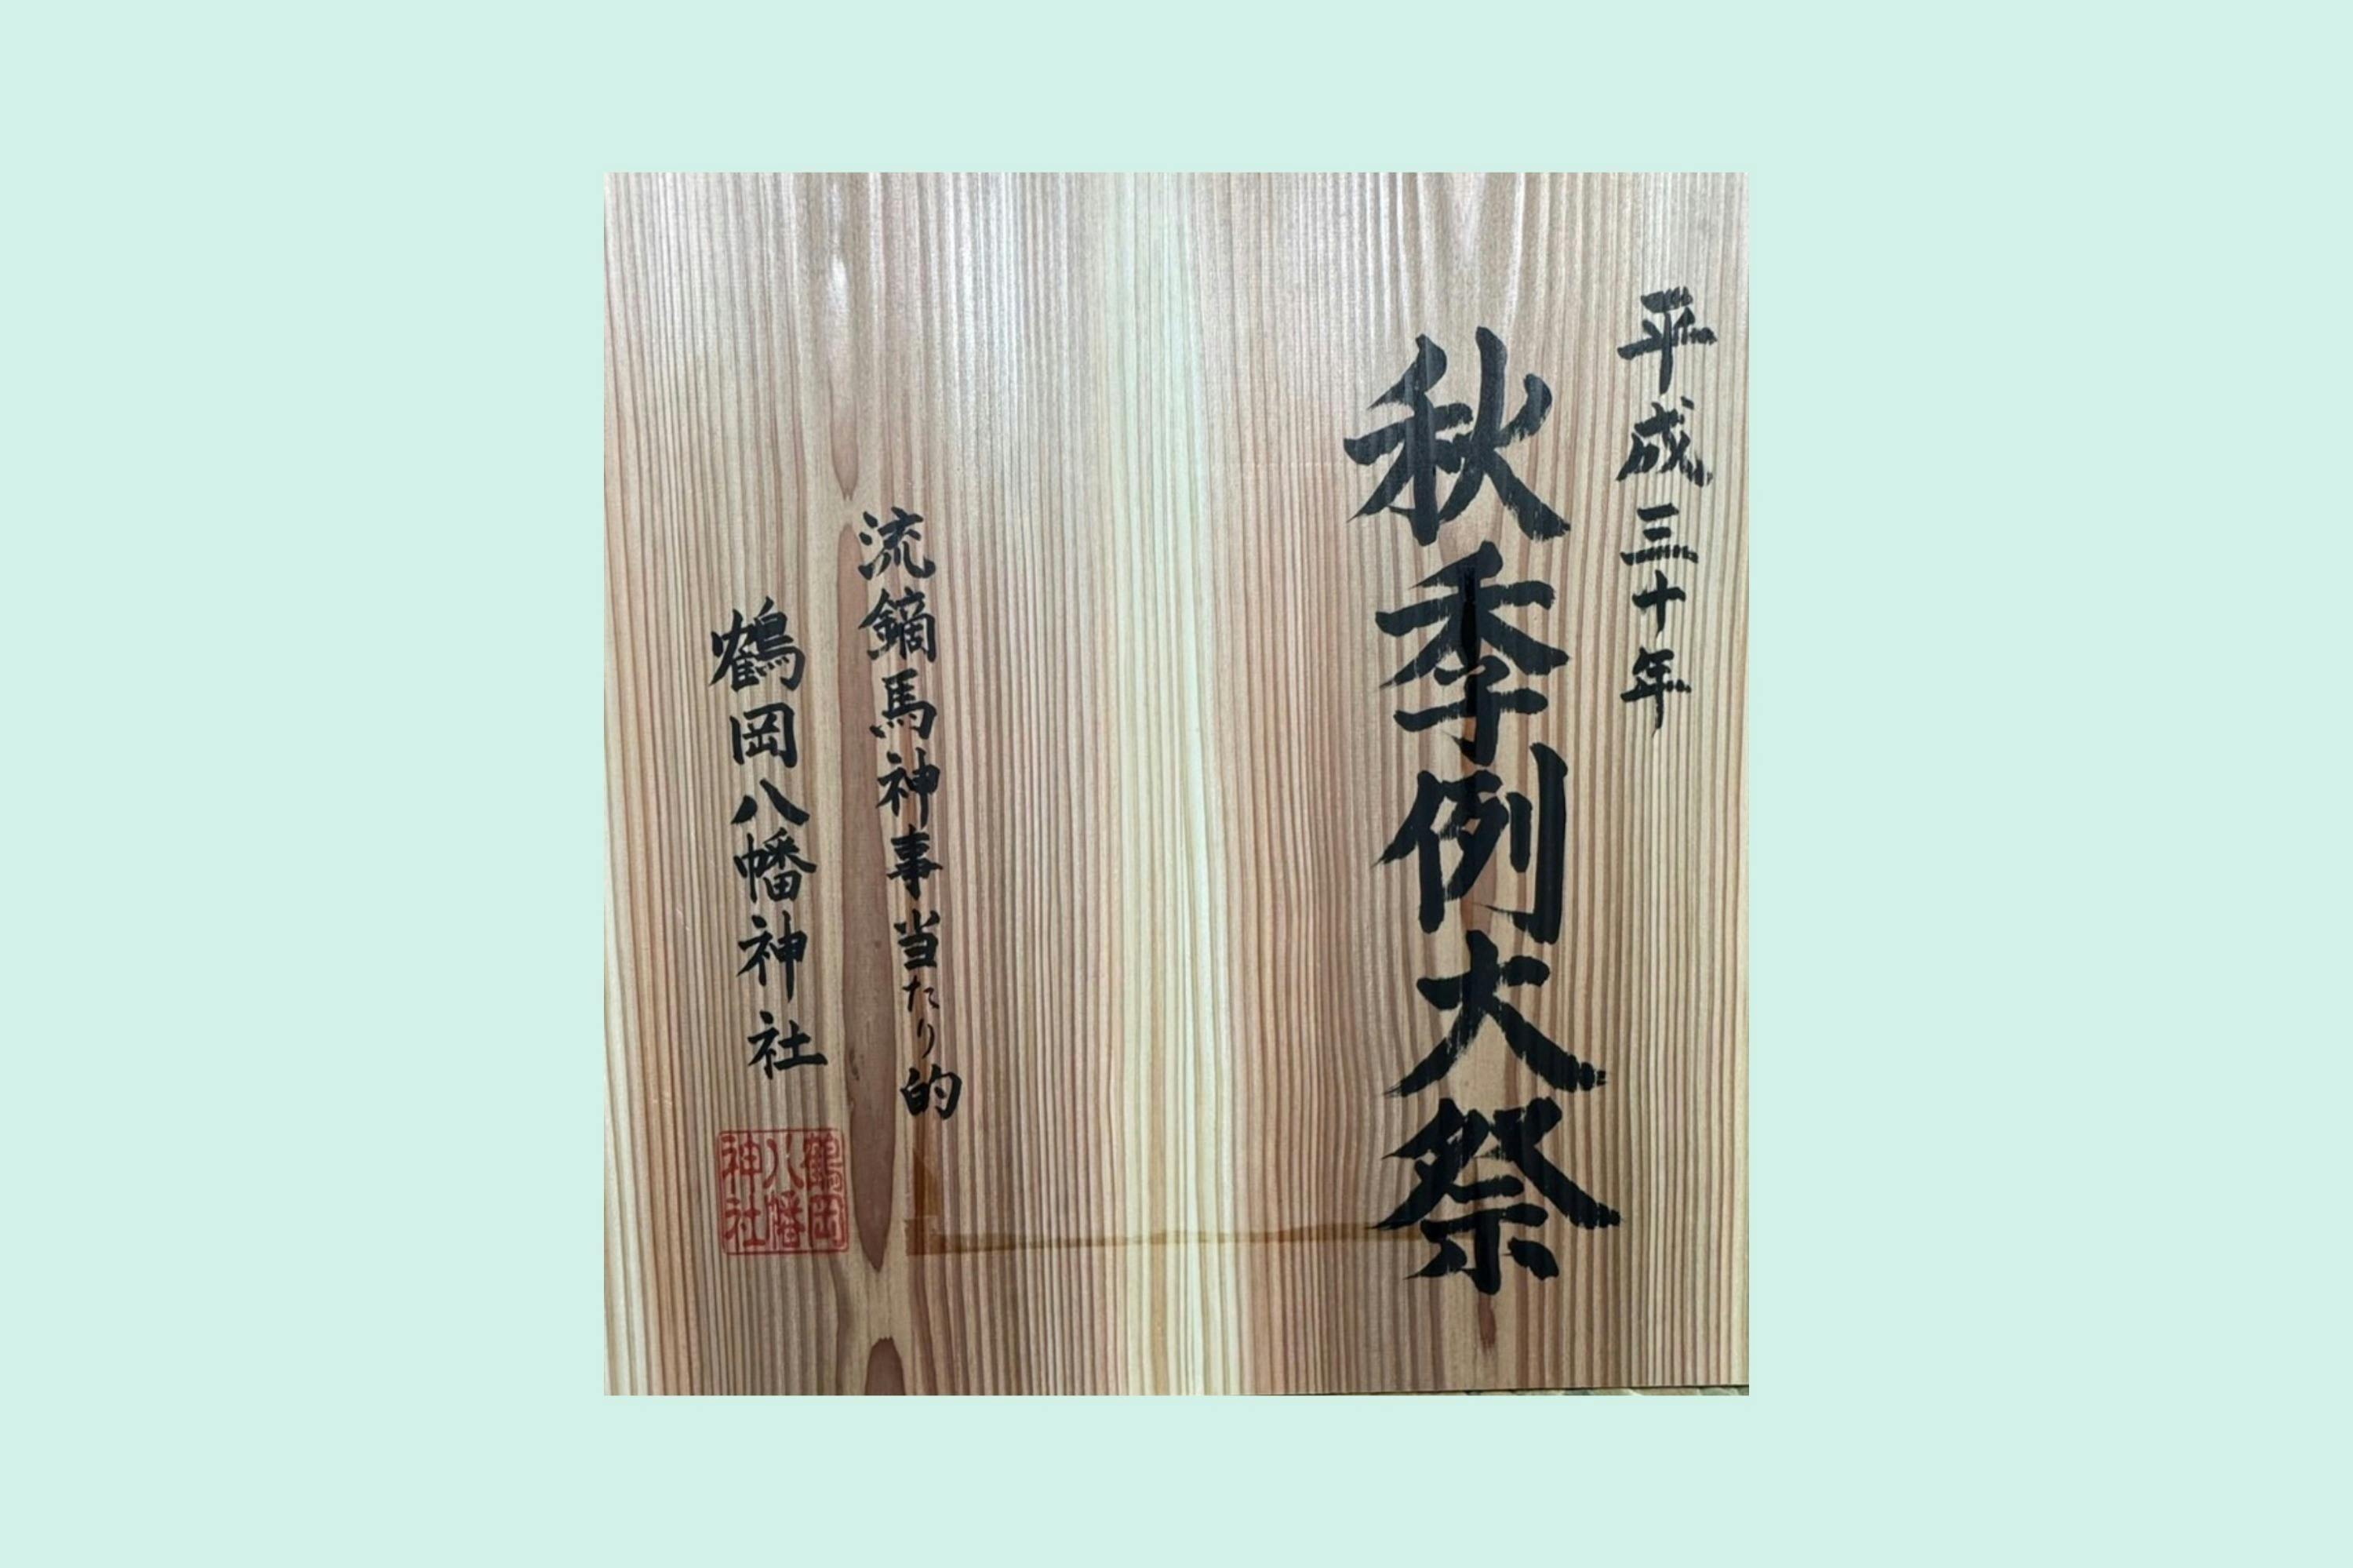 平成三十年
秋季例大祭
流鏑馬神事当たり的
鶴岡八幡神社
鶴岡
八幡
神社